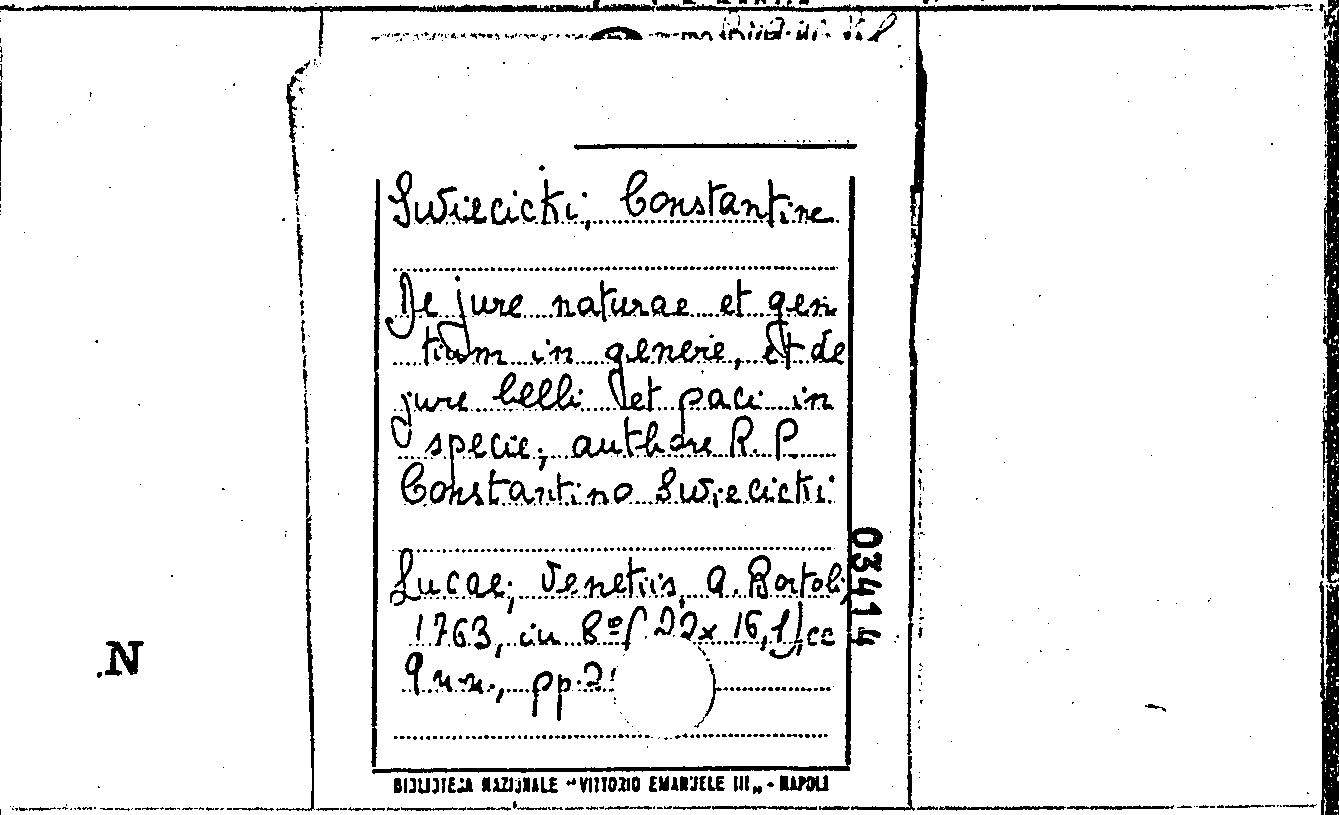 Swiecicki, Constantine
De jure naturae et gen
tium in genere, et de
jure belli et paci in
specie, authore R. P.
Constantino Swiecicki
Lucae; Venetiis, a. Bortoli,
1763, in 8º (22x 16,1), cc
9 n.n., pp. 2
03414
.N
BIBLIOTECA NAZIONALE "VITTORIO EMANUELE III„ - NAPOLI